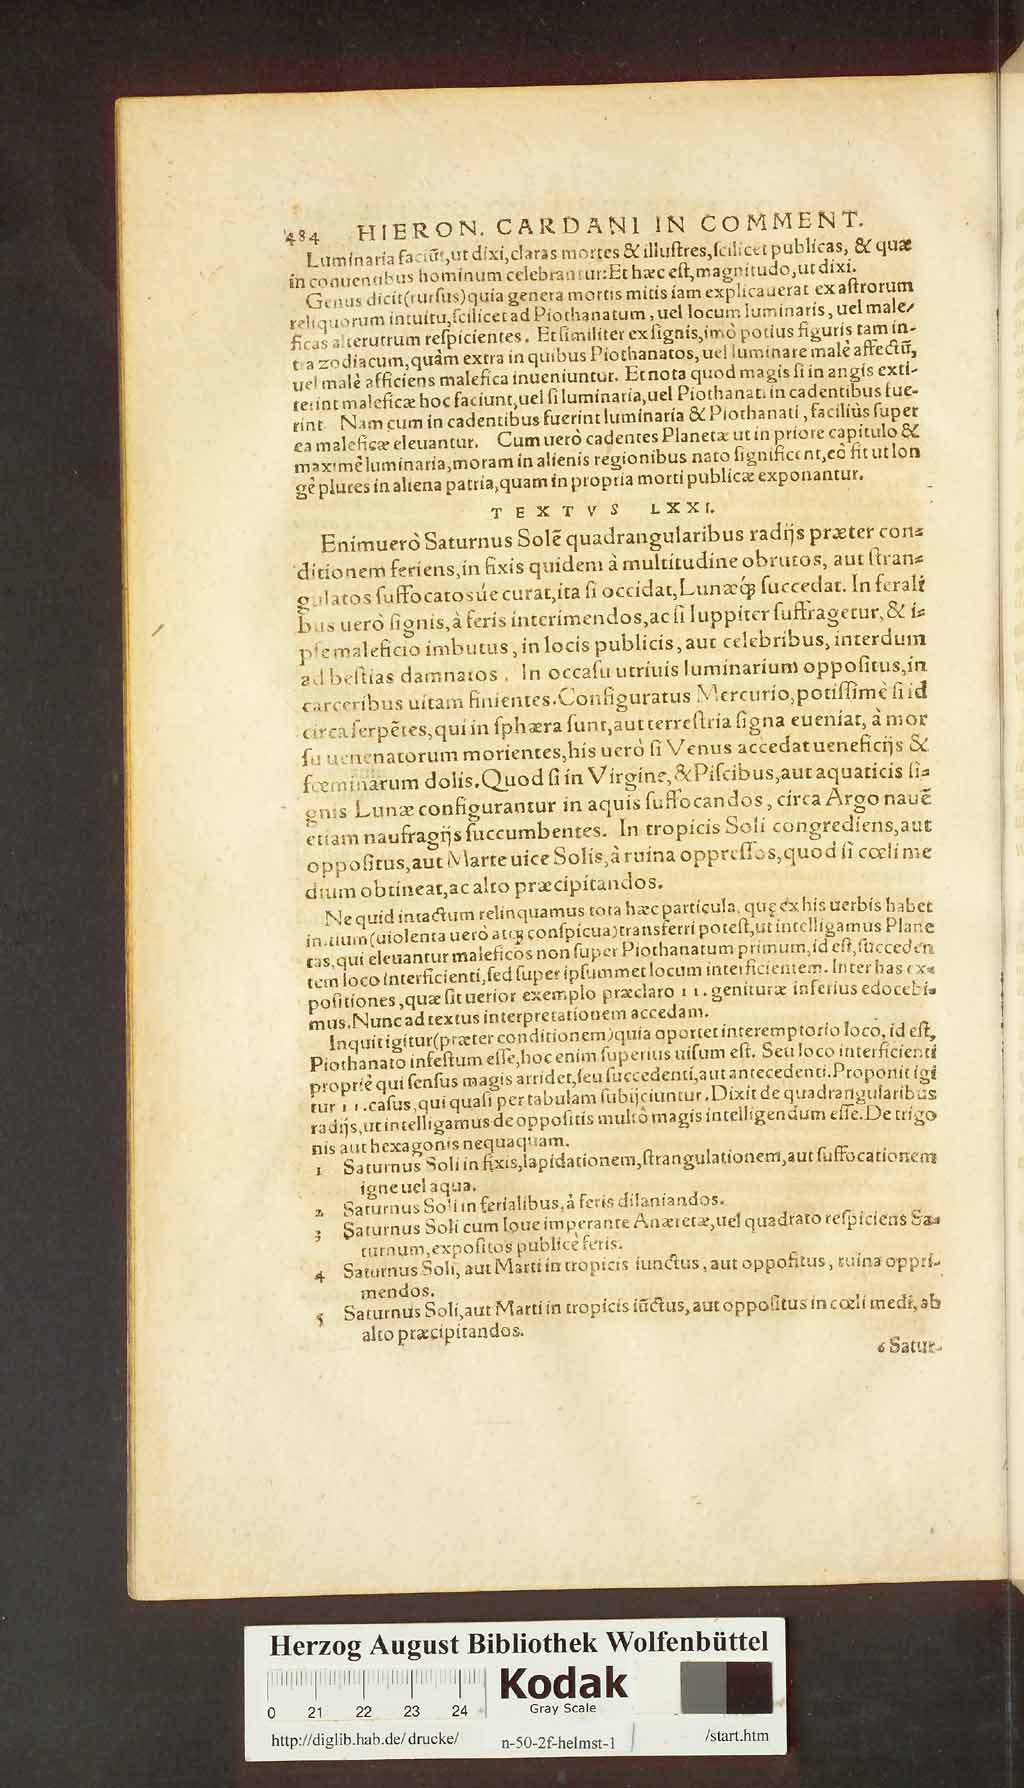 484 HIERON. CARDANI IN COMMENT.
Luminaria faciūt, ut dixi, claras mortes & illuſtres, ſcilicet publicas, & quæ
in conuentibus hominum celebrantur: Et hæc eſt, magnitudo, ut dixi.
Genus dicit (rurſus) quia genera mortis mitis iam explicauerat ex aſtrorum
reliquorum intuitu, ſcilicet ad Piothanatum, uel locum luminaris, uel male/
ficas alterutrum reſpicientes. Et ſimiliter ex ſignis, imò potius figuris tam in-
tra zodiacum, quàm extra in quibus Piothanatos, uel luminare malè affectū,
uel malè afficiens malefica inueniuntur. Et nota quod magis ſi in angis exti-
terint maleficæ hoc faciunt, uel ſi luminaria, uel Piothanati in cadentibus fue-
rint. Nam cum in cadentibus fuerint luminaria & Piothanati, faciliùs ſuper
ea maleficæ eleuantur. Cum uerò cadentes Planetæ ut in priore capitulo &
maximè luminaria, moram in alienis regionibus nato ſignificent, eò fit ut lon
gè plures in aliena patria, quam in propria morti publicæ exponantur.
TEXTVS LXXI.
Enimuerò Saturnus Solē quadrangularibus radijs præter con=
ditionem feriens, in fixis quidem à multitudine obrutos, aut ſtran=
gulatos ſuffocatosúe curat, ita ſi occidat, Lunæq́ꝫ ſuccedat. In ferali
bus uerò ſignis, à feris interimendos, ac ſi Iuppiter ſuffragetur, & i=
pſe maleficio imbutus, in locis publicis, aut celebribus, interdum
ad beſtias damnatos. In occaſu utriuis luminarium oppoſitus, in
carceribus uitam finientes. Configuratus Mercurio, potiſſimè ſi id
circa ſerpētes, qui in ſphæra ſunt, aut terreſtria ſigna eueniat, à mor
ſu uenenatorum morientes, his uerò ſi Venus accedat ueneficijs &
fœminarum dolis. Quod ſi in Virgine, & Piſcibus, aut aquaticis ſi=
gnis Lunæ configurantur in aquis ſuffocandos, circa Argo nauē
etiam naufragijs ſuccumbentes. In tropicis Soli congrediens, aut
oppoſitus, aut Marte uice Solis, à ruina oppreſſos, quod ſi cœli me
dium obtineat, ac alto præcipitandos.
Ne quid intactum relinquamus tota hæc particula, quę ex his uerbis habet
initium (uiolenta uerò atqꝫ conſpicua) transferri poteſt, ut intelligamus Plane
tas, qui eleuantur maleficos non ſuper Piothanatum primum, id eſt, ſucceden
tem loco interficienti, ſed ſuper ipſummet locum interficientem. Inter has ex=
poſitiones, quæ ſit uerior exemplo præclaro 11. genituræ inferius edocebi=
mus. Nunc ad textus interpretationem accedam.
Inquit igitur (præter conditionem) quia oportet interemptorio loco, id eſt,
Piothanato infeſtum eſſe, hoc enim ſuperius uiſum eſt. Seu loco interficienti
propriè qui ſenſus magis arridet, ſeu ſuccedenti, aut antecedenti. Proponit igi
tur 11. caſus, qui quaſi per tabulam ſubijciuntur. Dixit de quadrangularibus
radijs, ut intelligamus de oppoſitis multò magis intelligendum eſſe. De trigo
nis aut hexagonis nequaquam.
1 Saturnus Soli in fixis, lapidationem, ſtrangulationem, aut ſuffocationem
igne uel aqua.
2 Saturnus Soli in ferialibus, à feris dilaniandos.
3 Saturnus Soli cum Ioue imperante Anæretæ, uel quadrato reſpiciens Sa=
turnum, expoſitos publicè feris.
4 Saturnus Soli, aut Marti in tropicis iunctus, aut oppoſitus, ruina oppri-
mendos.
5 Saturnus Soli, aut Marti in tropicis iūctus, aut oppoſitus in cœli medi, ab
alto præcipitandos.
6 Satur-
Herzog August Bibliothek Wolfenbüttel
Kodak
Gray Scale
0 21 22 23 24
http://diglib.hab.de/drucke/ n-50-2f-helmst-1 /start.htm